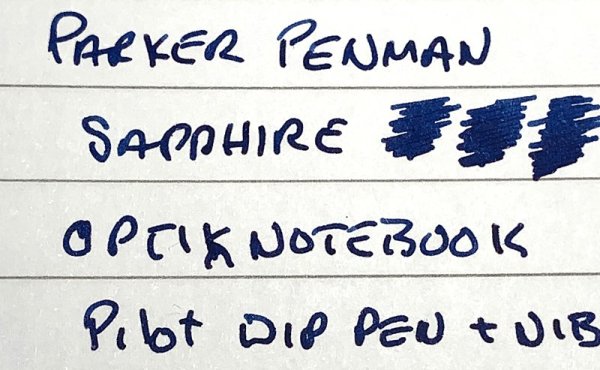 PARKER PENMAN
SAPPHIRE
OPTIK NOTEBOOK
Pilot DIP PEN + NIB